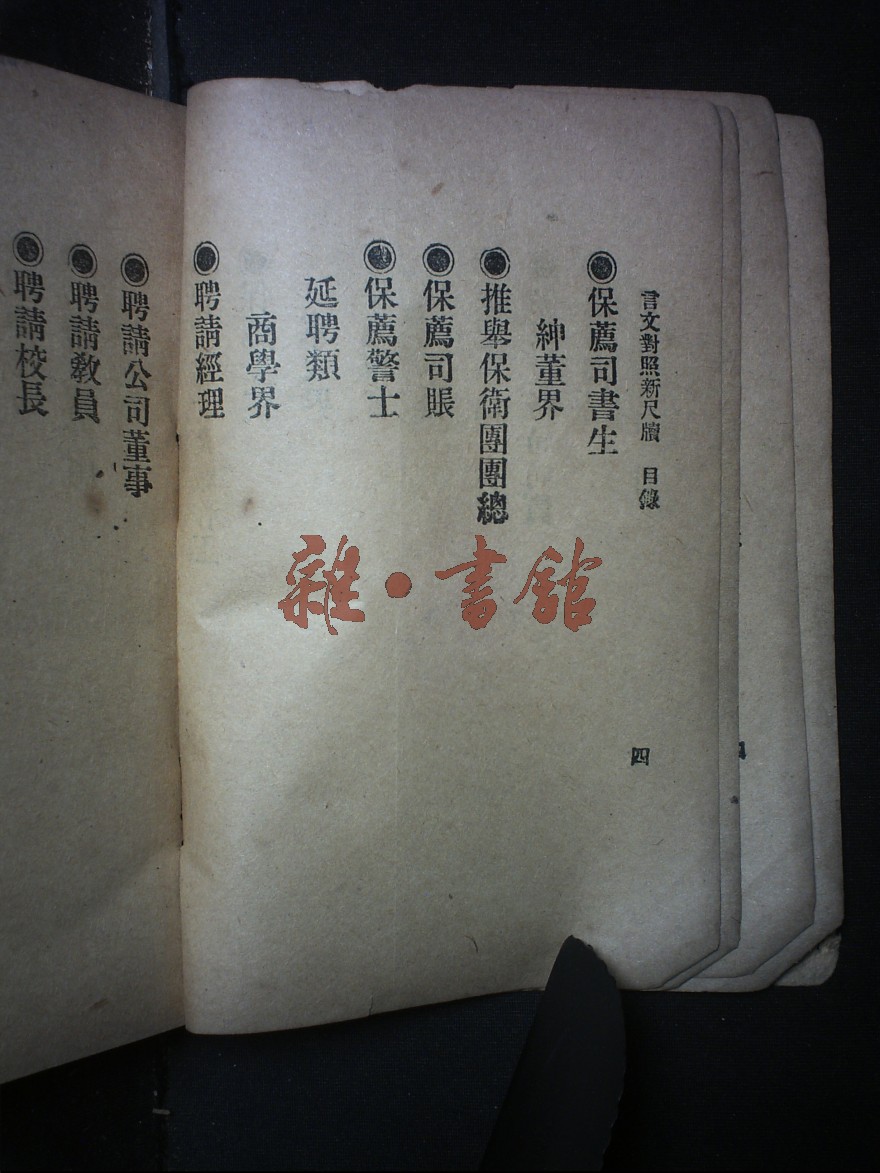 言文對照新尺牘　目錄
四
◉保薦司書生
紳董界
◉推舉保衛團團總
◉保薦司賬
◉保薦警士
延聘類
商學界
◉聘請經理
◉聘請公司董事
◉聘請教員
◉聘請校長
雜·書館